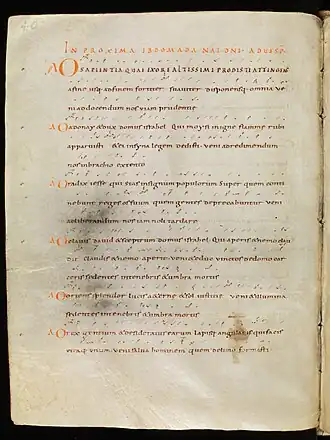 IN PROXIMA EBDOMADA NAT DNI AD EVG
AO SAPIENTIA QUAE EX ORE ALTISSIMI PRODISTI ATTINGENS
a fine usque ad finem fortiter suauiter disponensque omnia ue
ni ad docendum nos uiam prudentiae
AO adonay & dux domus israhel qui moysi in igne flamme rubi
apparuisti & ei in syna legem dedisti ueni ad redimendum
nos in brachio extento
AO radix iesse qui stas in signum populorum super quem conti
nebunt reges os suum quem gentes deprecabuntur ueni
ad liberandum nos iam noli tardare
AO clauis dauid & sceptrum domus israhel qui aperis & nemo clau
dit claudis & nemo aperit ueni & educ uinctos de domo car
ceris sedentes in tenebris & umbra mortis
AO oriens splendor lucis aeternae & sol iustitiae ueni & illumina
sedentes in tenebris & umbra mortis
AO rex gentium & desideratus earum lapisque angularis qui facis
utraque unum ueni salua hominem quem de limo formasti